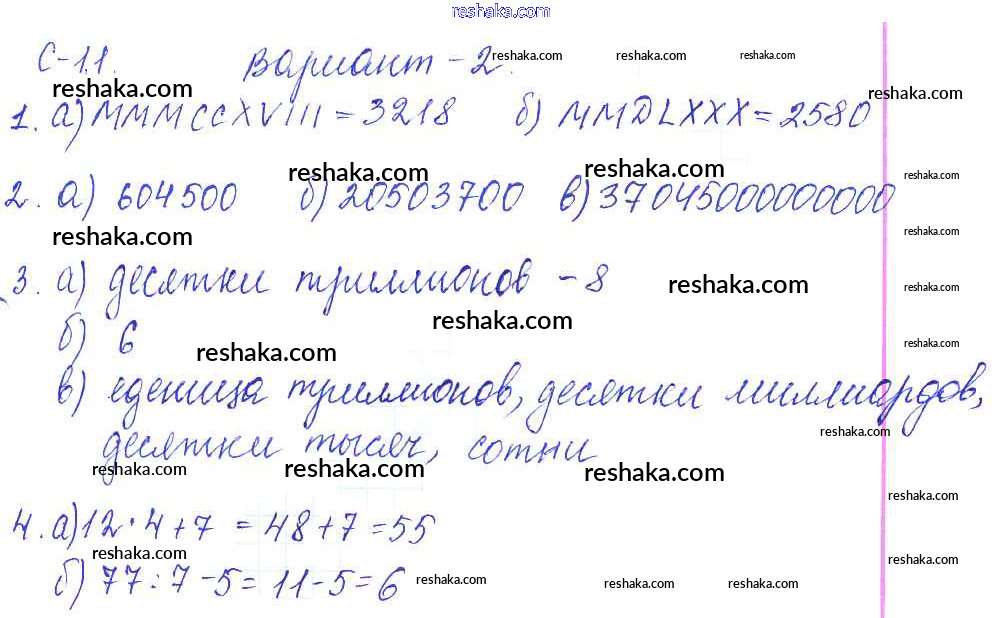 reshaka.com
С-1.1. Вариант-2.
reshaka.com reshaka.com reshaka.com
reshaka.com reshaka.com
1. а) MMMCCXVIII = 3218 б) MMDLXXX = 2580
reshaka.com reshaka.com reshaka.com
2. а) 604500 б) 20503700 в) 37045000000000
reshaka.com reshaka.com
3. а) десятки триллионов - 8
reshaka.com reshaka.com
reshaka.com
б) 6
reshaka.com reshaka.com
в) еденица триллионов, десятки миллиардов,
reshaka.com
десятки тысяч, сотни
reshaka.com reshaka.com reshaka.com
reshaka.com
4. а) 12 · 4 + 7 = 48 + 7 = 55
reshaka.com reshaka.com
б) 77 : 7 - 5 = 11 - 5 = 6
reshaka.com reshaka.com reshaka.com